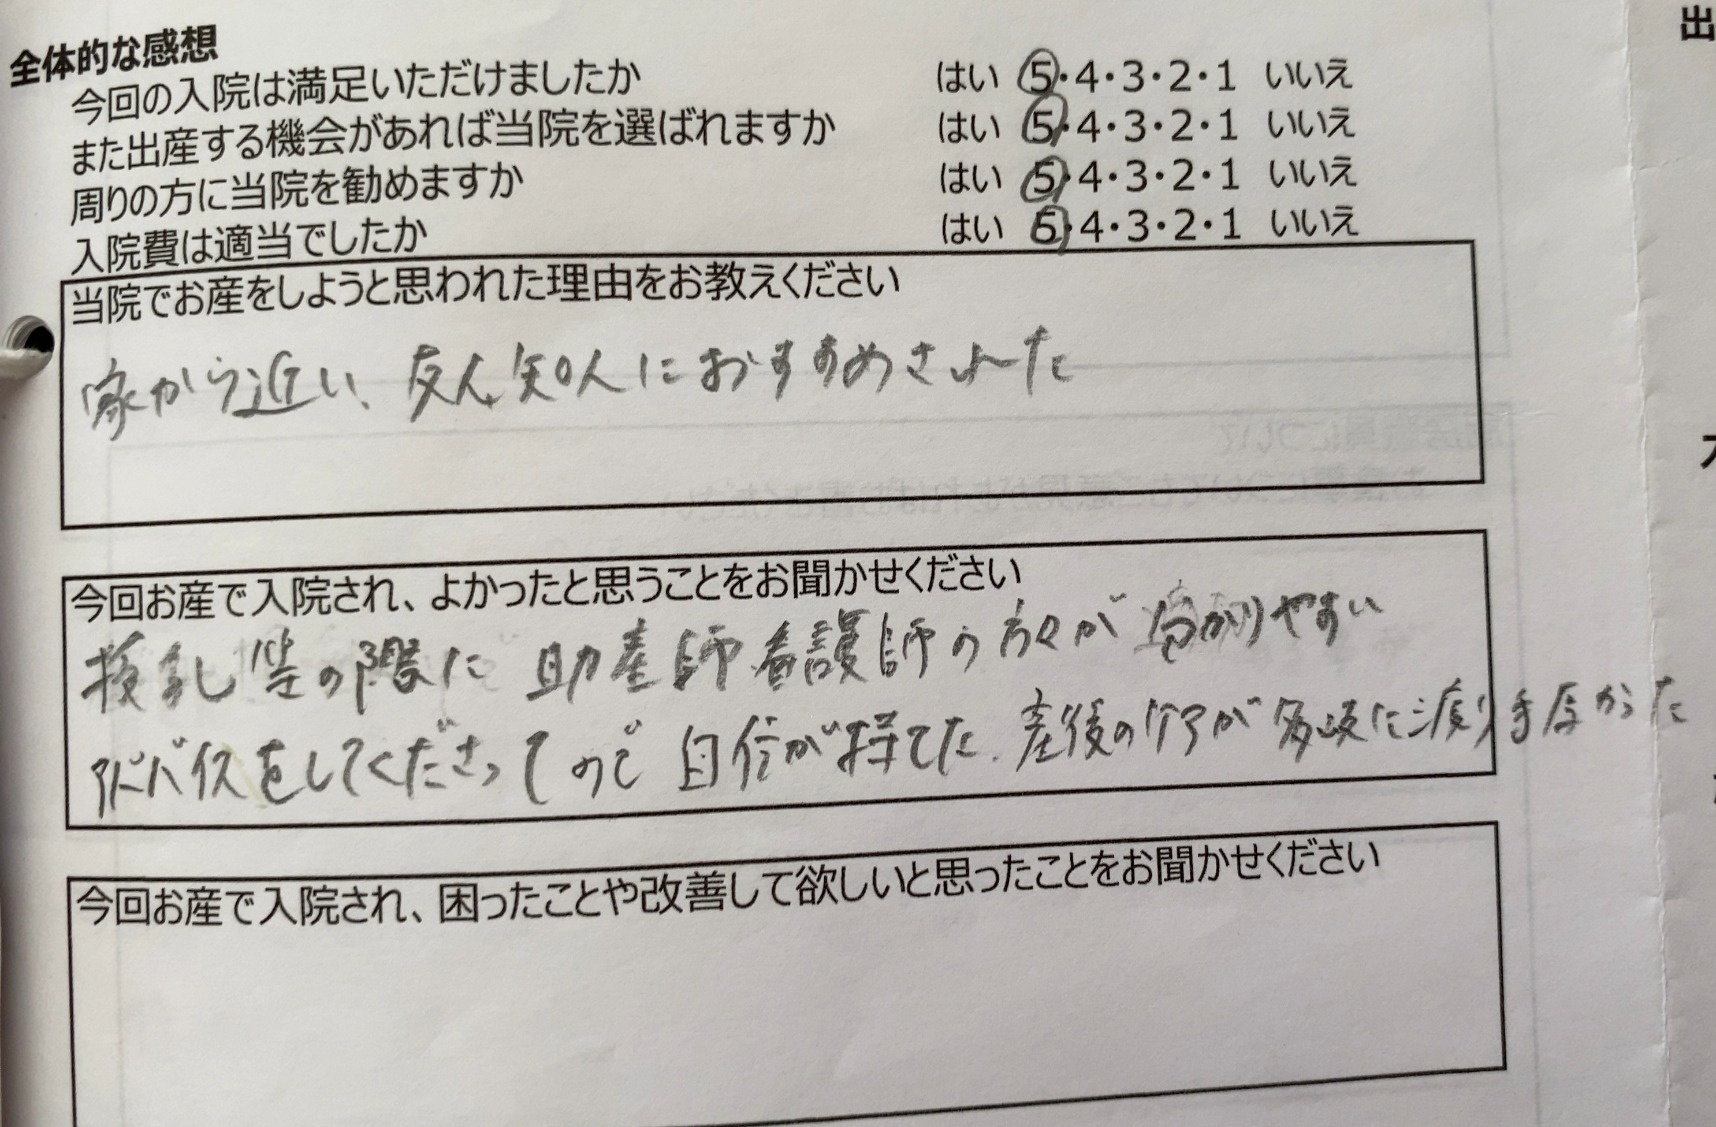 全体的な感想
今回の入院は満足いただけましたか はい 5・4・3・2・1 いいえ
また出産する機会があれば当院を選ばれますか はい 5・4・3・2・1 いいえ
周りの方に当院を勧めますか はい 5・4・3・2・1 いいえ
入院費は適当でしたか はい 5・4・3・2・1 いいえ
当院でお産をしようと思われた理由をお教えください
家から近い、友人、知人におすすめされた
今回お産で入院され、よかったと思うことをお聞かせください
授乳等の際に 助産師看護師の方々が 分かりやすい
アドバイスをしてくださってので 自信が持てた。産後のケアが多岐に渡り手厚かった
今回お産で入院され、困ったことや改善して欲しいと思ったことをお聞かせください
出